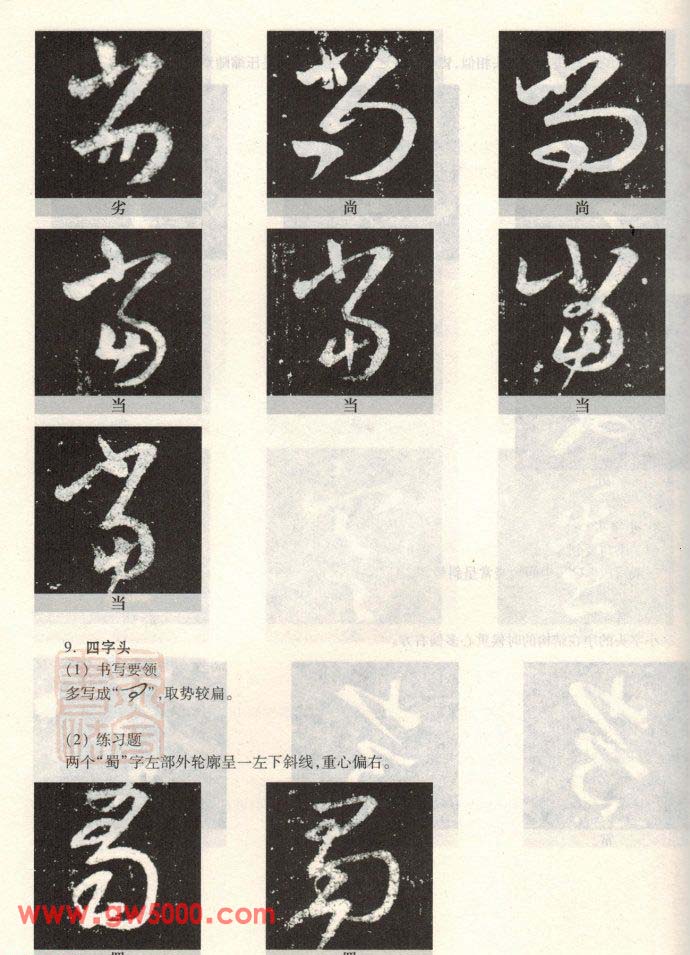 劣 尚 尚
当 当 当
当
9. 四字头
(1) 书写要领
多写成“ ”,取势较扁。
(2) 练习题
两个“蜀”字左部外轮廓呈一左下斜线,重心偏右。
www.gw5000.com